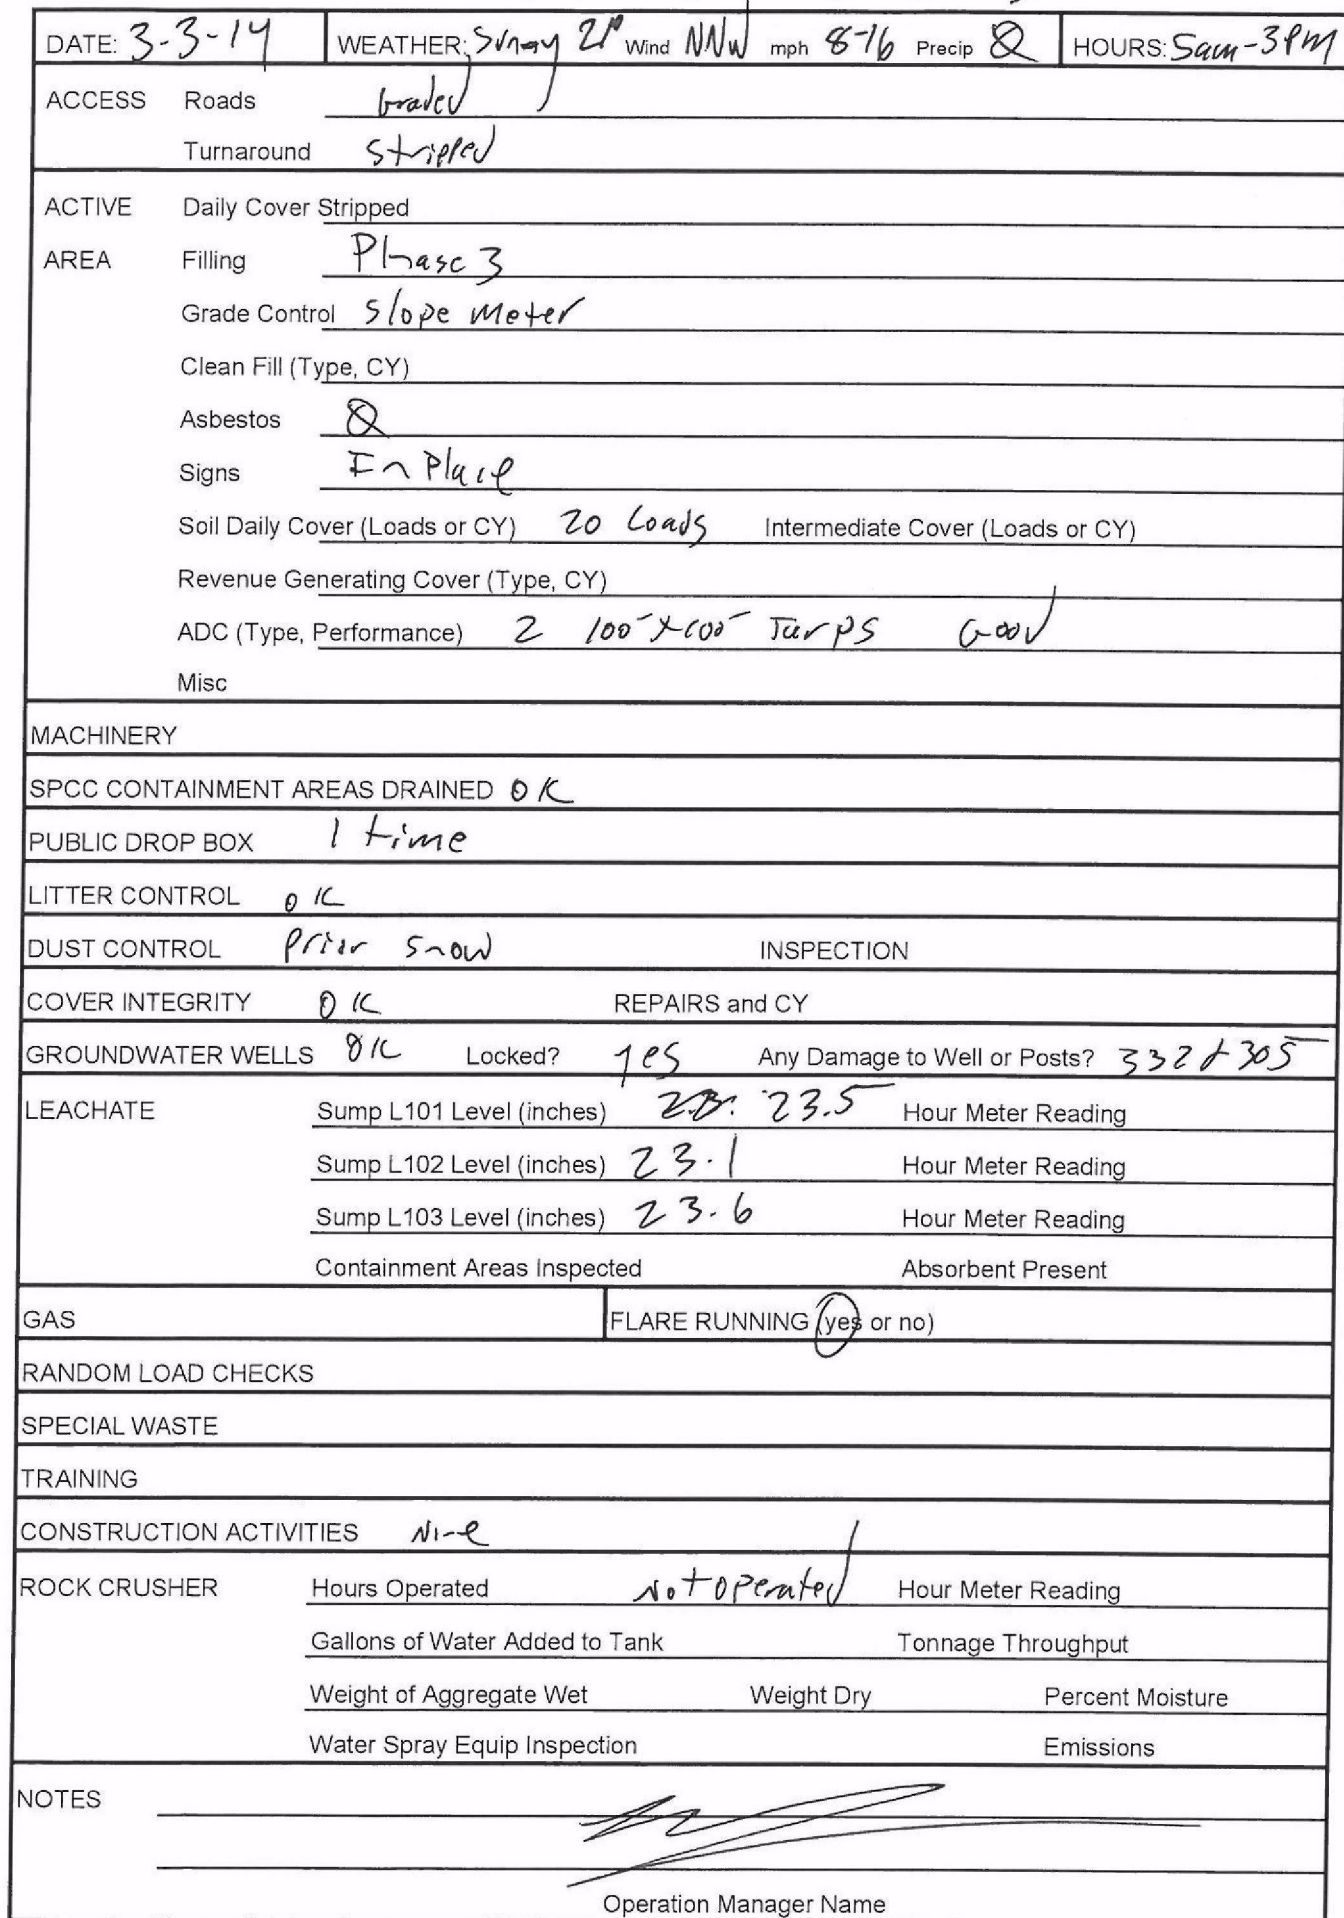 DATE: 3-3-14 WEATHER: Sunny 21° Wind NNW mph 8-16 Precip Ø HOURS: 5am-3PM
ACCESS Roads Graded
Turnaround Stripped
ACTIVE Daily Cover Stripped
AREA Filling Phase 3
Grade Control Slope Meter
Clean Fill (Type, CY)
Asbestos Ø
Signs In Place
Soil Daily Cover (Loads or CY) 20 Loads Intermediate Cover (Loads or CY)
Revenue Generating Cover (Type, CY)
ADC (Type, Performance) 2 100' x 100' Tarps Good
Misc
MACHINERY
SPCC CONTAINMENT AREAS DRAINED OK
PUBLIC DROP BOX 1 time
LITTER CONTROL OK
DUST CONTROL Prior Snow INSPECTION
COVER INTEGRITY OK REPAIRS and CY
GROUNDWATER WELLS OK Locked? yes Any Damage to Well or Posts? 332 & 305
LEACHATE Sump L101 Level (inches) 23.5 Hour Meter Reading
Sump L102 Level (inches) 23.1 Hour Meter Reading
Sump L103 Level (inches) 23.6 Hour Meter Reading
Containment Areas Inspected Absorbent Present
GAS FLARE RUNNING (yes or no)
RANDOM LOAD CHECKS
SPECIAL WASTE
TRAINING
CONSTRUCTION ACTIVITIES None
ROCK CRUSHER Hours Operated Not Operated Hour Meter Reading
Gallons of Water Added to Tank Tonnage Throughput
Weight of Aggregate Wet Weight Dry Percent Moisture
Water Spray Equip Inspection Emissions
NOTES
Operation Manager Name